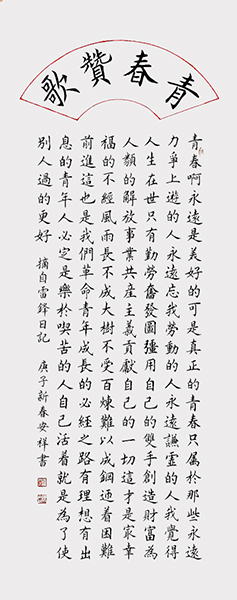 青春贊歌
青春啊永遠是美好的可是真正的青春只屬於那些永遠
力爭上遊的人永遠忘我勞動的人永遠謙虛的人我覺得
人生在世只有勤勞奮發圖彊用自己的雙手創造財富為
人類的解放事業共產主義貢獻自己的一切這才是最幸
福的不經風雨長不成大樹不受百煉難以成鋼迎着困難
前進這也是我們革命青年成長的必經之路有理想有出
息的青年人必定是樂於喫苦的人自己活着就是為了使
別人過的更好 摘自雷鋒日記 庚子新春安祥書